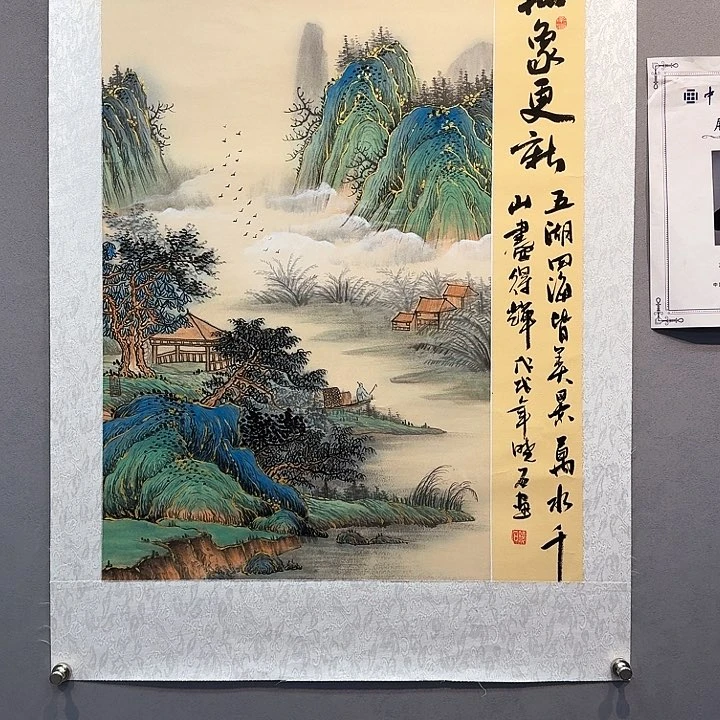 象更新
五湖四海皆美景萬水千
山盡得輝 戊戌年晓石画
中